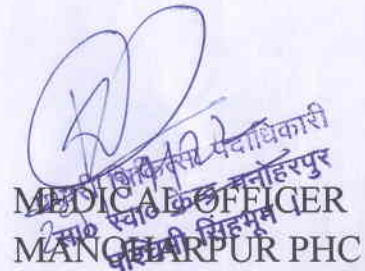 चिकित्सा पदाधिकारी
सा० स्वा० केन्द्र मनोहरपुर
पश्चिमी सिंहभूम ।
MEDICAL OFFICER
MANOHARPUR PHC